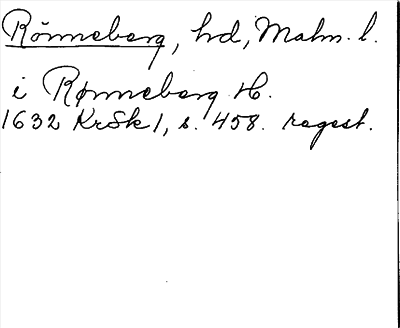 Rönneberg, hd, Malm. l.
i Rønneberg H.
1632 KrSk 1, s. 458. regest.